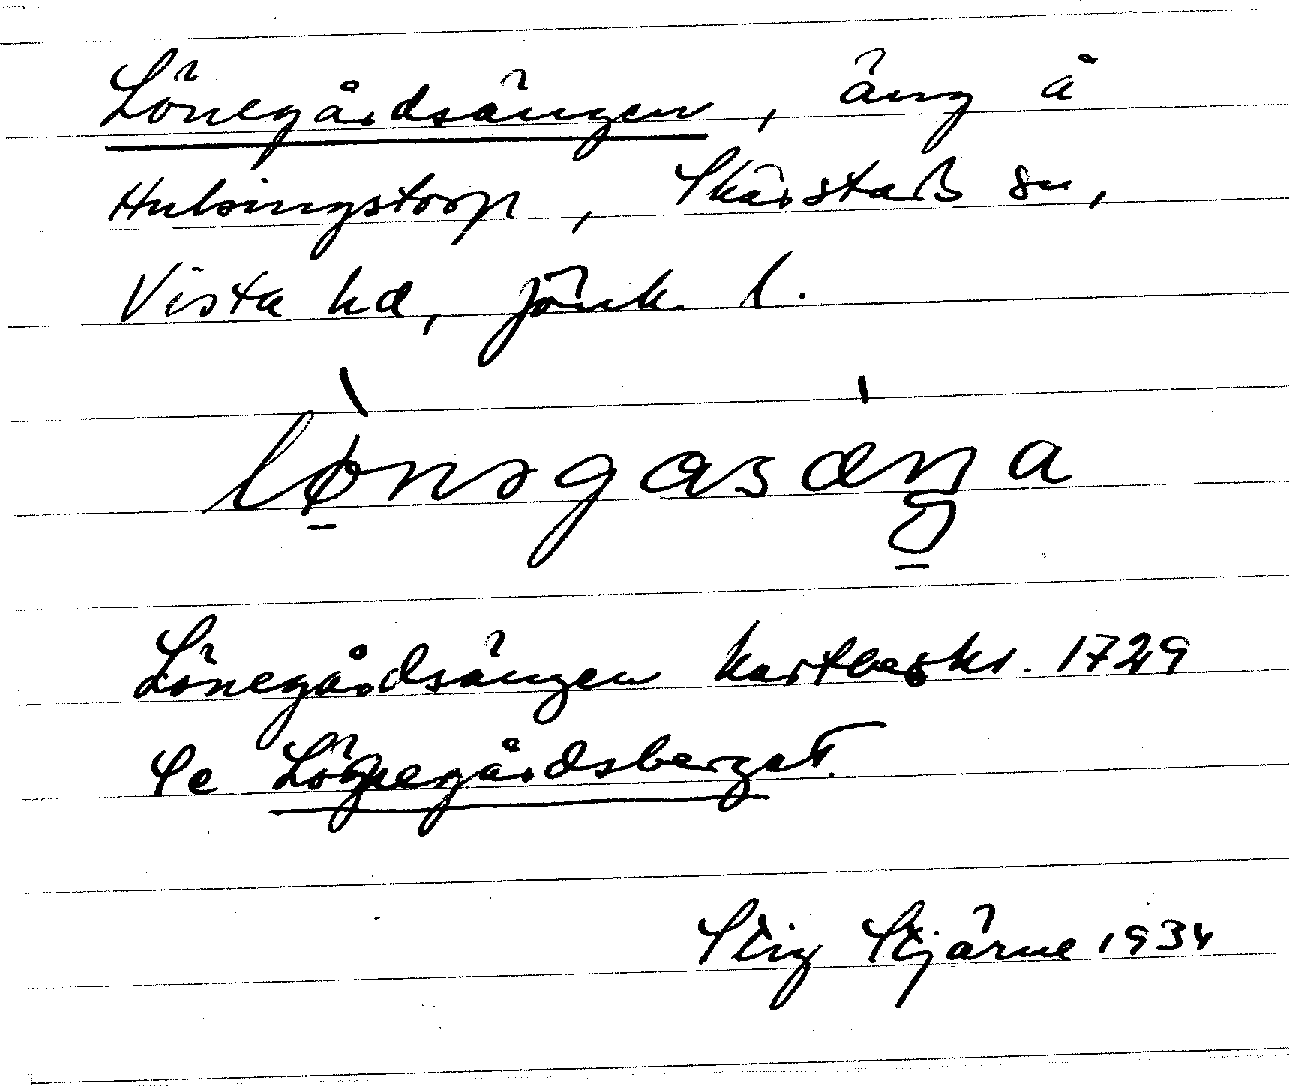 Lönegårdsängen, äng å
Hulsingstorp, Skärstads sn,
Vista hd, Jönk. l.
lø̀nəgasáŋa
Lönegårdsängen kartbeskr. 1729
Se Lönegårdsberget.
Stig Stjärne 1934